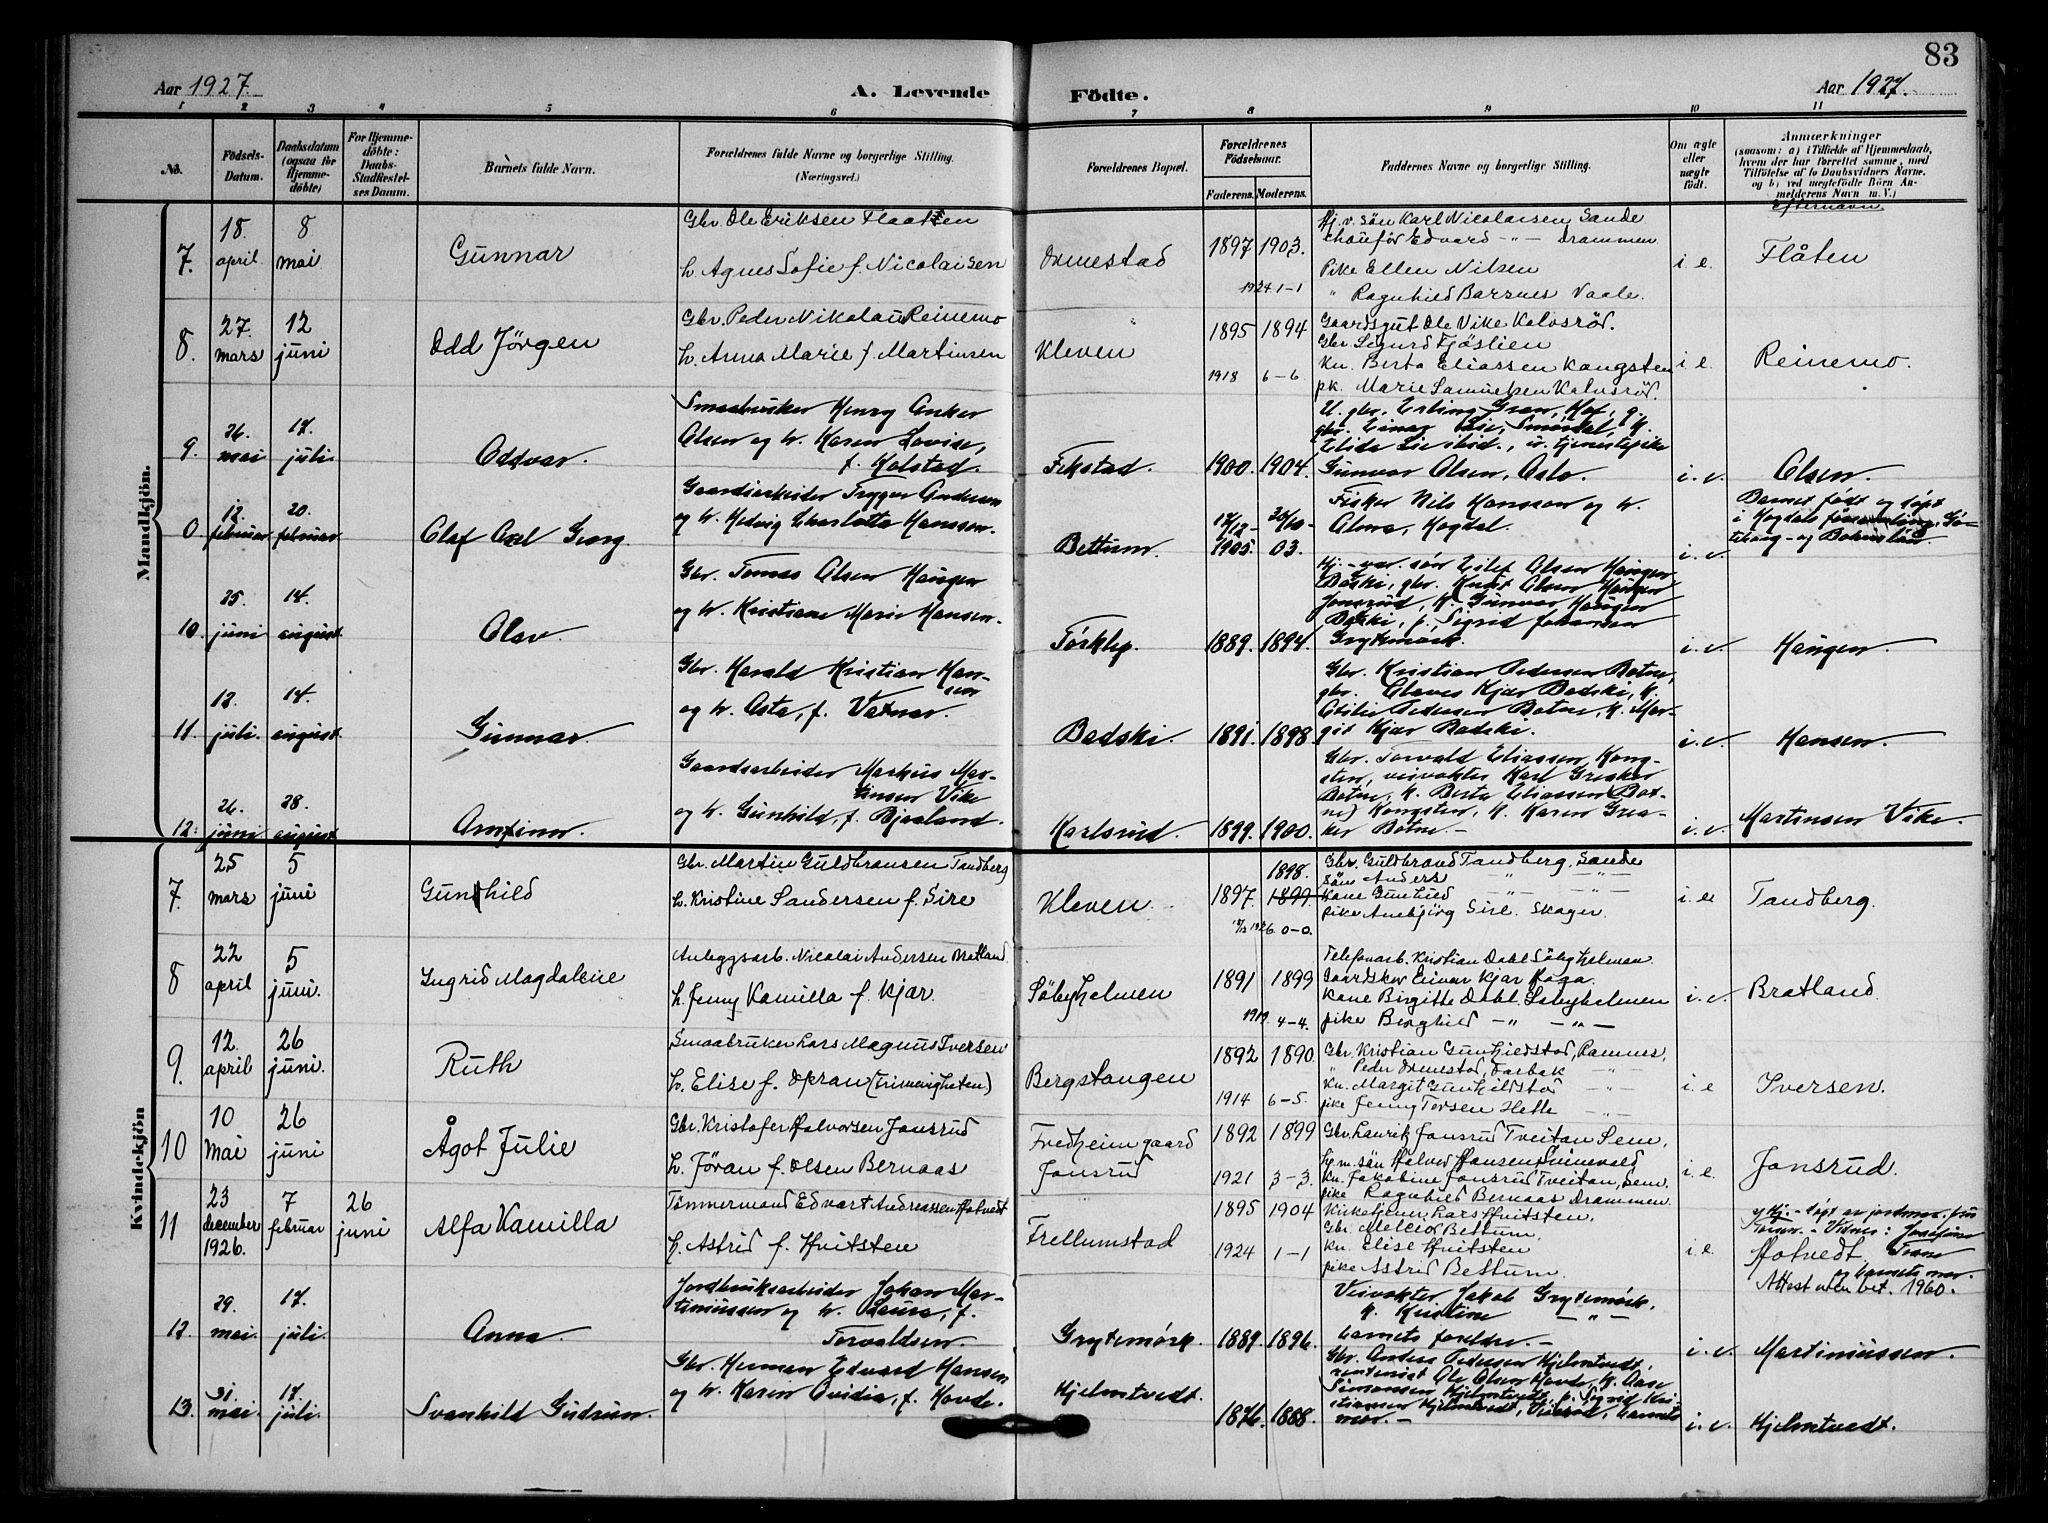 83
Aar 1927.
A. Levende
Födte.
Aar 1927.
1 2 3 4 5 6 7 8 9 10 11
No.
Födsels-Datum.
Daabsdatum (ogsaa for Hjemmedöbte)
For Hjemmedöbte: Daabs-Stadfæstelses Datum.
Barnets fulde Navn.
Forældrenes fulde Navne og borgerlige Stilling. (Næringsvei.)
Forældrenes Bopæl.
Forældrenes Födselsaar.
Faderens. Moderens.
Faddernes Navne og borgerlige Stilling.
Om ægte eller uægte födt.
Anmærkninger (saasom: a) i Tilfælde af Hjemmedaab, hvem der har forrettet samme, med Tilföielse af to Daabsvidners Navne, og b) ved uægtefödte Börn Anmelderens Navn m. V.)
Efternavn
Mandkjön.
7. 18. april 8 mai Gunnar
Gbr. Ole Eriksen Flaaten
h. Agnes Sofie f. Nicolaisen
Ormestad 1897 1903.
1924 1-1
Hj. v. sön Karl Nicolaisen Sande
Chauför Edvard -"- Drammen
Pike Ellen Nilsen
" Ragnhild Barsnes Vaale.
i e. Flåten
8. 27. mars 12 juni Odd Jörgen
Gbr. Peder Nikolau Reinemo
h. Anna Marie f. Martinsen
Kleven 1895 1894
1918 6-6
Gaardsgut Ole Vike Kolvsröd.
Gbr. Sigurd Fjöslien
Kn. Berta Eliassen Kongsten
pk. Marie Samuelsen Kolvsröd.
i e. Reinemo.
9. 26. mai 17. juli Oddvar.
Smaabruker Henry Anker
Olsen og h. Karen Lovise,
f. Kolstad.
Fekstad. 1900. 1904.
U. gbr. Erling Gran, Hof, g.
gbr. Einar Lie, Smördal, k.
Elida Lie ibid., u. tjenestepike
Gunvor Olsen, Oslo.
i. e. Olsen.
0 12. februar 20. februar Olaf Axel Georg.
Gaardsarbeider Trygve Andersen
og h. Hedvig Charlotte Hansson.
Bettum. 17/12-1905. 28/10-03.
Fisker Nils Hansson og h.
Alma, Hogdal.
i. e.
Barnet födt og döpt
i Hogdals församling, Gö-
teborg- og Bohuslän.
10. 25. juni 14. august. Olav.
Gbr. Tomas Olsen Haugen
og h. Kristiane Marie Hansen.
Torklep. 1889. 1894.
Hj.-vær. sön Eilef Olsen Haugen
Bodski, gbr. Knut Olsen Haugen
Jonsrud, k. Gunvor Haugen
Bodski, p. Sigrid Johansen
Grytemörk.
i. e. Haugen.
11. 12. juli. 14. august. Gunnar.
Gbr. Harald Kristian Han-
sen
og h. Asta, f. Vatnar.
Bodski. 1891. 1898.
Gbr. Kristian Pedersen Botne,
gbr. Claves Kjær Bodski, k.
Otilie Pedersen Botne, k. Mar-
git Kjær Bodski.
i. e. Hansen.
12. 26. juni 28. august Arnfinn.
Gaardsarbeider Markus Mar-
tinsen Vike
og h. Gunhild, f. Bjaaland.
Karlsrud. 1899. 1900.
Gbr. Torvald Eliassen, Kong-
sten, veivokter Karl Greaker
Botne, k. Berta Eliassen (Bot-
ne) Kongsten, k. Karen Grea-
ker Botne.-
i. e. Martinsen Vike.
Kvindekjön
7. 25 mars 5 juni Gunhild
Gbr. Martin Guldbransen Tandberg
h. Kristine Sandersen f. Sire
Kleven. 1897 1898. 1899
1926. 0-0.
Gbr. Guldbrand Tandberg, Sande
Sön Anders -"- -"-
Kone Gunhild -"- -"-
pike Anebjörg Sire. Skoger.
i. e. Tandberg.
8 22 april 5 juni. Ingrid Magdalene
Anleggsarb. Nicolai Andersen Bratland
h. Jenny Kamilla f. Kjær.
Söbyholmen 1891 1899
1919. 4-4.
Telefonarb. Kristian Dahl Söbyholmen.
Gaardsker Einar Kjær Haga.
Kone Birgitte Dahl Söbyholmen
pike Borghild -"- -"-
i. e. Bratland.
9. 12. april 26 juni. Ruth
Smaabruker Lars Magnus Iversen
h. Elise f. Opran (trimenigheten)
Bergstangen 1892 1890.
1914 6-5.
Gbr. Kristian Gunhildstad, Ramnes,
" Peder Ormestad, Forbek "
Kn. Margit Gunhildstad "
pike Jenny Torsen Hette -"-
i. e Iversen.
10 10 Mai 26 juni Ågot Julie
Gbr. Kristofer Halvorsen Jonsrud
h. Jöran f. Olsen Bernaas
Fredheim gaard
Jonsrud 1892 1899
1921 3-3.
Gbr. Laurik Jonsrud Tveitan Sem,
hj.m. sön Halvod Hansen Trinevold
Kn. Jakobine Jonsrud Tveitan, Sem.
pike Ragnhild Bernaas Drammen.
i. e. Jonsrud.
11 23 december 1926. 7 februar 26 juni Alfa Kamilla
Tömmermand Edvart Andreassen Hotvedt
h. Astrid f. Hvitsten
Frellumstad 1895 1904
1924 1-1
Kirketjener Lars Hvitsten.
Gbr. Melcior Bettum.
Kn. Elise Hvitsten
pike Astrid Bettum.
i. e. Hotvedt
Hj.-döpt av jordmor fru
Trane.- Vidner: Josefine
Trane
og barnets mor.
Attest uten bet. 1960.
12. 29. mai. 17. juli. Anna.
Jordbruksarbeider Johan Mar-
tiniussen og h. Laura, f.
Torvaldsen.
Grytemörk. 1889. 1896.
Veivokter Jakob Grytemörk,
k. Kristine -"-
barnets foreldre.-
i. e. Martiniussen.
13. 31. mai. 17. juli. Svanhild Gudrun.
Gbr. Herman Edvard Hansen
og h. Karen Ovidia, f. Hovde.
Hjelmtvedt. 1876. 1888.
Gbr. Anders Pedersen Hjelmtvedt,
rentenist Ole Olsen Hovde, k. Aase
Simonsen Hjelmtvedt, p. Sigrid Kri-
stiansen Hjelmtvedt, barnets
mor.-
i. e. Hjelmtvedt.